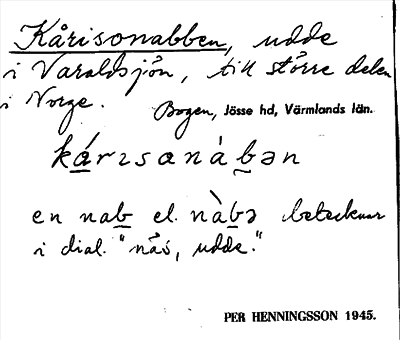 Kårisonabben, udde
i Varaldsjön, till större delen
i Norge.
Bogen, Jösse hd, Värmlands län.
kárısonàbən
en nab el. nàbə betecknar
i dial. "näs, udde."
PER HENNINGSSON 1945.